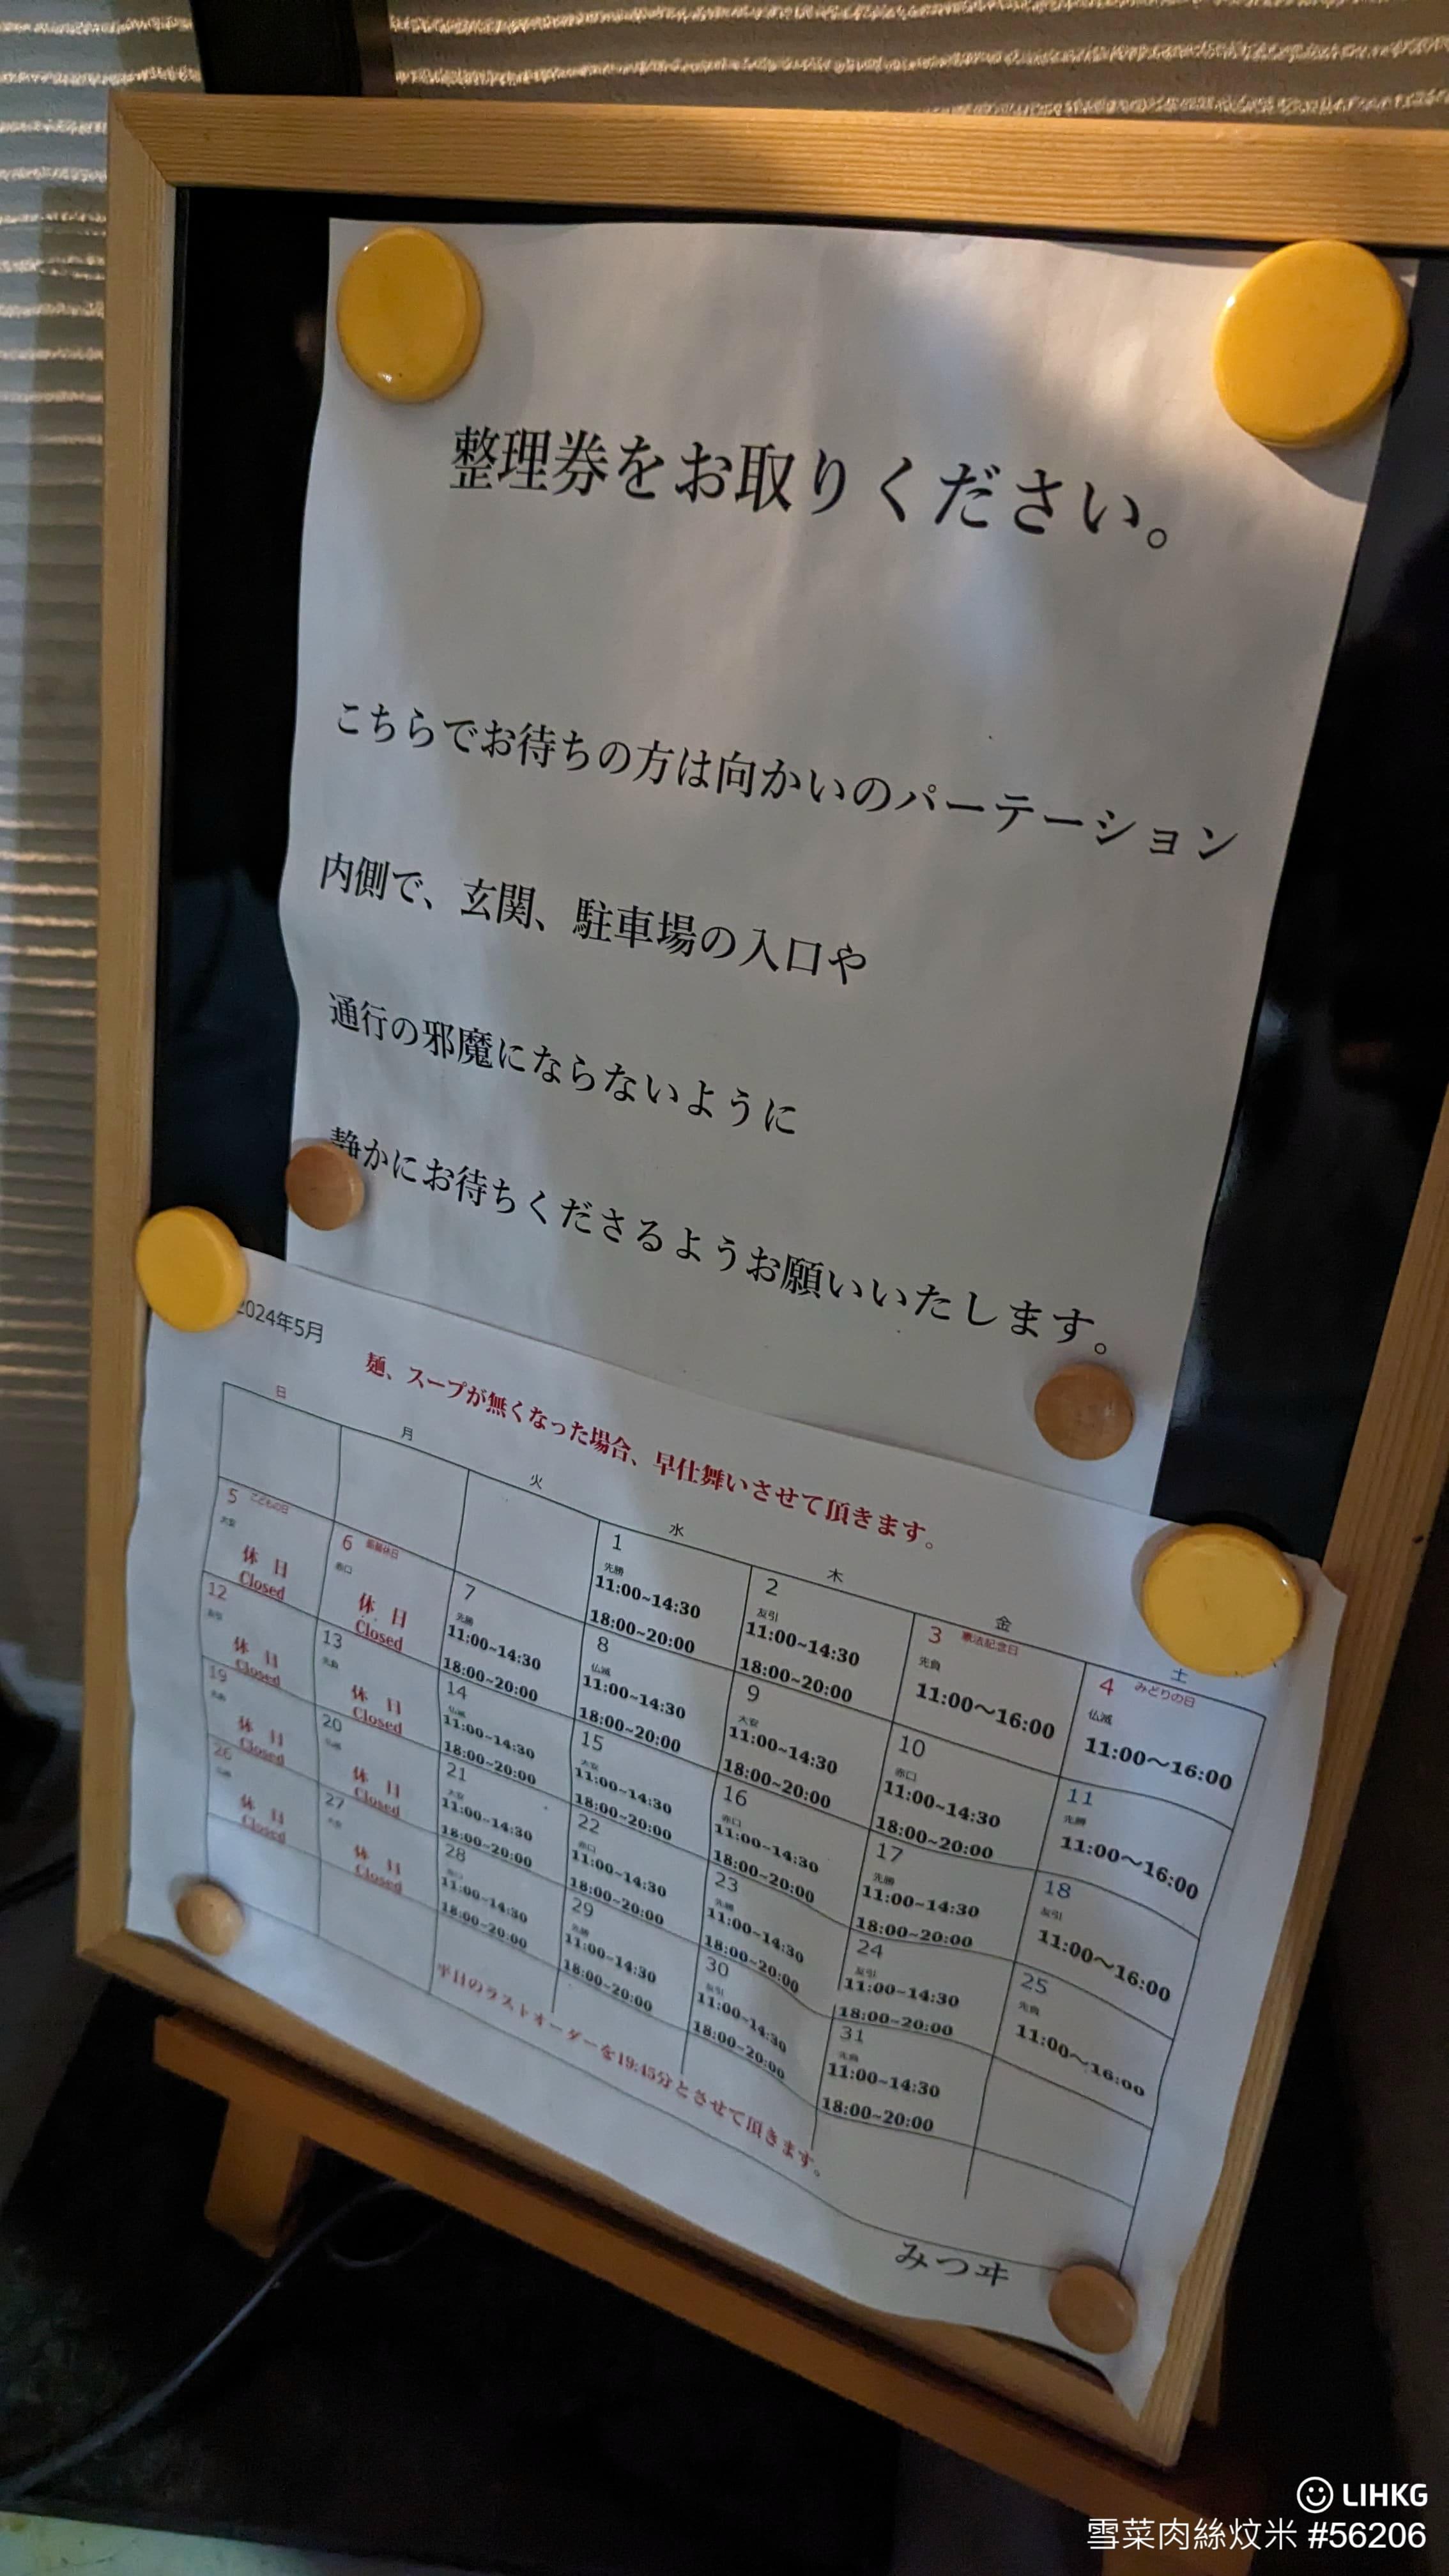 整理券をお取りください。
こちらでお待ちの方は向かいのパーテーション
内側で、玄関、駐車場の入口や
通行の邪魔にならないように
静かにお待ちくださるようお願いいたします。
2024年5月
麺、スープが無くなった場合、早仕舞いさせて頂きます。
日 月 火 水 木 金 土
1 2 3 憲法記念日 4 みどりの日
先勝 友引 先負 仏滅
11:00~14:30 11:00~14:30 11:00〜16:00 11:00〜16:00
18:00~20:00 18:00~20:00
5 こどもの日 6 振替休日 7 8 9 10 11
大安 赤口 先勝 仏滅 大安 赤口 先勝
休日 休日 11:00~14:30 11:00~14:30 11:00~14:30 11:00~14:30 11:00〜16:00
Closed Closed 18:00~20:00 18:00~20:00 18:00~20:00 18:00~20:00
12 13 14 15 16 17 18
友引 先負 仏滅 大安 赤口 先勝 友引
休日 休日 11:00~14:30 11:00~14:30 11:00~14:30 11:00~14:30 11:00〜16:00
Closed Closed 18:00~20:00 18:00~20:00 18:00~20:00 18:00~20:00
19 20 21 22 23 24 25
大安 赤口 先勝 友引 先負
休日 休日 11:00~14:30 11:00~14:30 11:00~14:30 11:00~14:30 11:00〜16:00
Closed Closed 18:00~20:00 18:00~20:00 18:00~20:00 18:00~20:00
26 27 28 29 30 31
赤口 先勝 友引 先負
休日 休日 11:00~14:30 11:00~14:30 11:00~14:30 11:00~14:30
Closed Closed 18:00~20:00 18:00~20:00 18:00~20:00 18:00~20:00
平日のラストオーダーを19:45分とさせて頂きます。
みつヰ
LIHKG
雪菜肉絲炆米 #56206